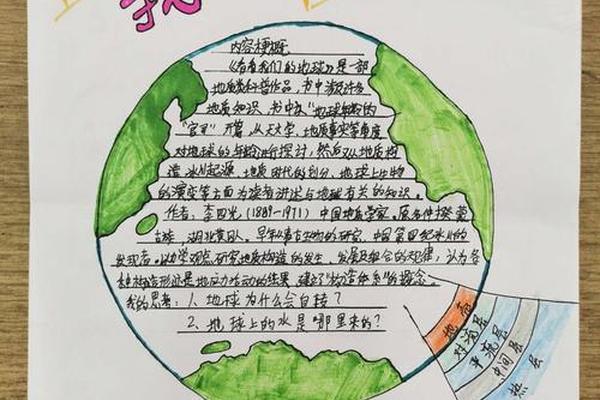 内容梗概
《看看我们的地球》是一部
地质类科普作品，书中涉及许多
地质知识，书中从"地球年龄的
"官司"开篇，从天文学、地质事实等角度
对地球的年龄进行探讨，然后又从地质构
造、冰川起源、地质时代的划分、地球上生物
的演变等方面为读者讲述与地球有关的知识。
作者：李四光（1889-1971）中国地质学家，
古族，湖北黄冈人。早年从事古生物的研究，中国第四纪冰川的
发现者。以力学观点研究地质构造的发生、发展及组合的规律，认为各
种构造形迹是地应力活动的结果，建立了"构造体系"的概念。
我的思考：1、地球为什么会自转？
2、地球上的水是哪里来的？
地壳
对流层
平流层
中间层
热层